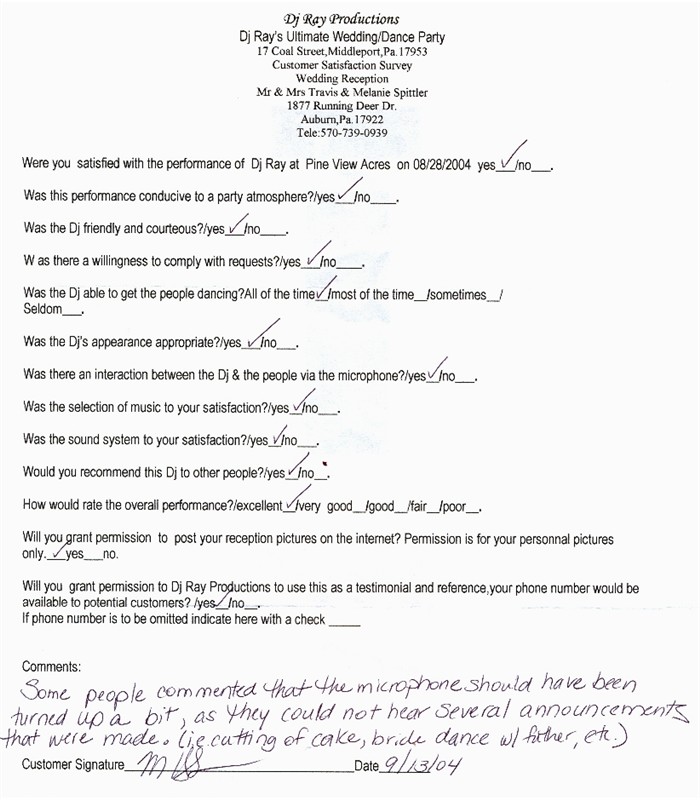 Dj Ray Productions
Dj Ray's Ultimate Wedding/Dance Party
17 Coal Street,Middleport,Pa.17953
Customer Satisfaction Survey
Wedding Reception
Mr & Mrs Travis & Melanie Spittler
1877 Running Deer Dr.
Auburn,Pa.17922
Tele:570-739-0939
Were you satisfied with the performance of Dj Ray at Pine View Acres on 08/28/2004 yes_✓_/no___.
Was this performance conducive to a party atmosphere?/yes_✓_/no____.
Was the Dj friendly and courteous?/yes_✓_/no____.
W as there a willingness to comply with requests?/yes_✓_/no____.
Was the Dj able to get the people dancing?All of the time_✓_/most of the time__/sometimes__/
Seldom___.
Was the Dj's appearance appropriate?/yes_✓_/no___.
Was there an interaction between the Dj & the people via the microphone?/yes_✓_/no___.
Was the selection of music to your satisfaction?/yes_✓_/no___.
Was the sound system to your satisfaction?/yes_✓_/no___.
Would you recommend this Dj to other people?/yes_✓_/no__.
How would rate the overall performance?/excellent_✓_/very good__/good__/fair__/poor__.
Will you grant permission to post your reception pictures on the internet? Permission is for your personnal pictures
only._✓_yes___no.
Will you grant permission to Dj Ray Productions to use this as a testimonial and reference,your phone number would be
available to potential customers? /yes_✓_/no__.
If phone number is to be omitted indicate here with a check _____
Comments:
Some people commented that the microphone should have been
turned up a bit, as they could not hear several announcements
that were made. (i.e. cutting of cake, bride dance w/ father, etc.)
Customer Signature Date 9/13/04